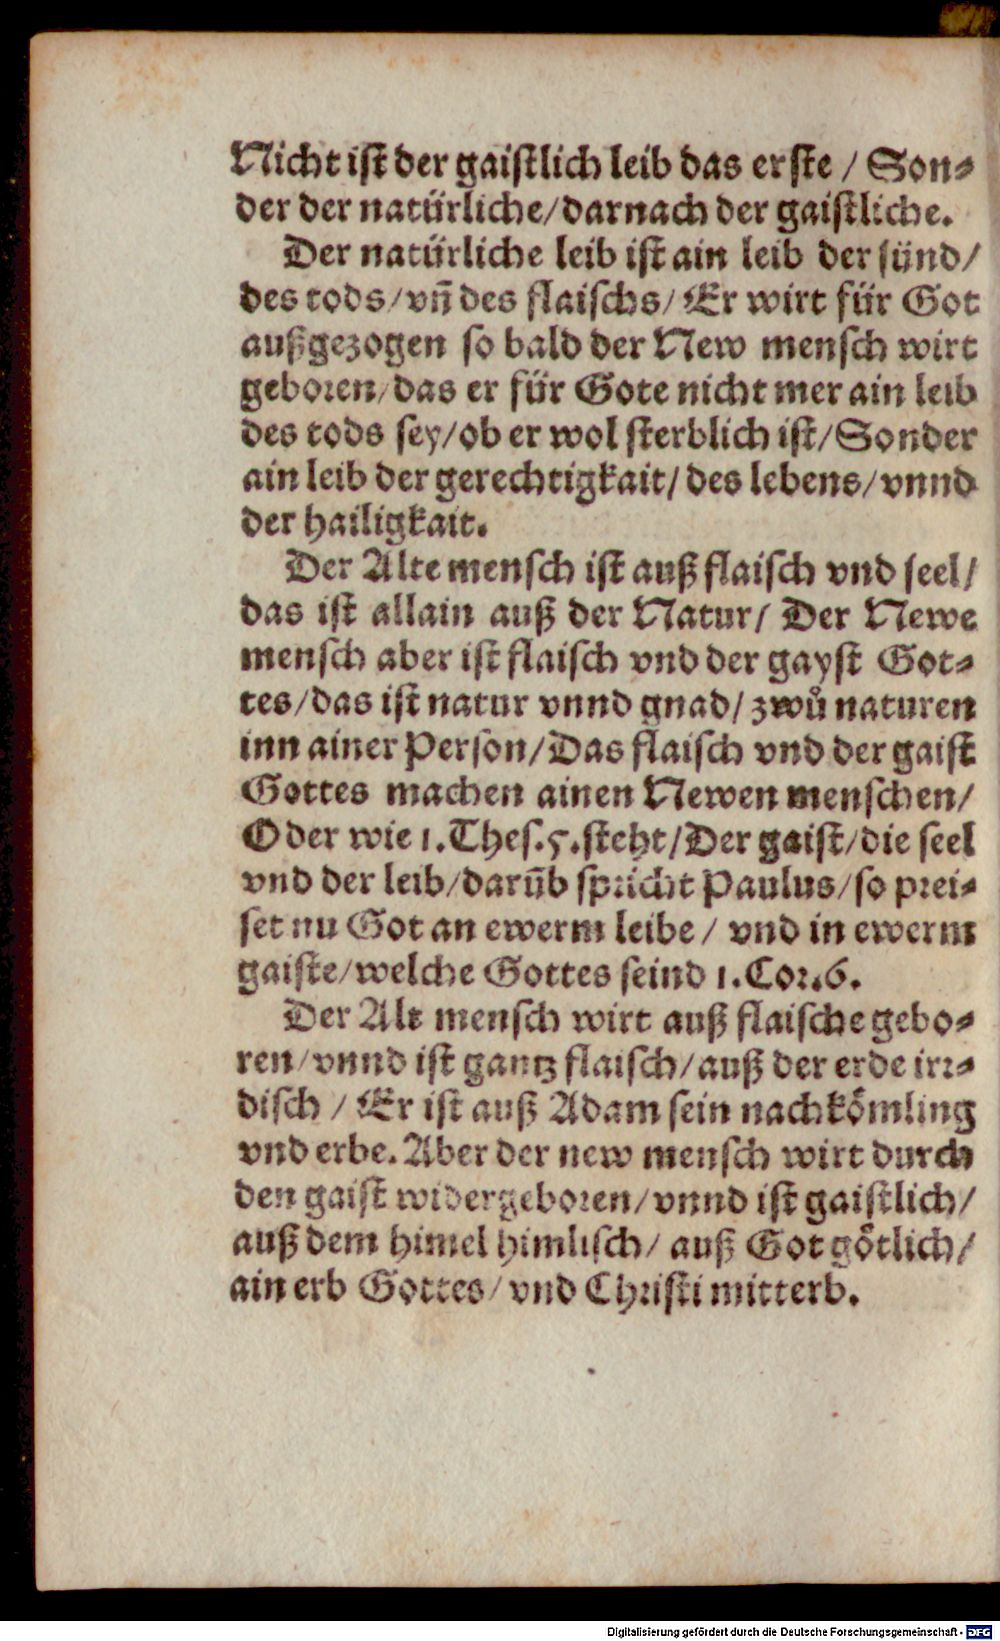 Nicht ist der gaistlich leib das erste / Son⸗
der der natürliche/darnach der gaistliche.
Der natürliche leib ist ain leib der sünd/
des tods/vñ des flaischs/Er wirt für Got
außgezogen so bald der New mensch wirt
geboren/das er für Gote nicht mer ain leib
des tods sey/ob er wol sterblich ist/Sonder
ain leib der gerechtigkait/des lebens/vnnd
der hailigkait.
Der Alte mensch ist auß flaisch vnd seel/
das ist allain auß der Natur/ Der Newe
mensch aber ist flaisch vnd der gayst Got⸗
tes/das ist natur vnnd gnad/zwů naturen
inn ainer Person/Das flaisch vnd der gaist
Gottes machen ainen Newen menschen/
Oder wie 1.Thes.5.steht/Der gaist/die seel
vnd der leib/darūb spricht Paulus/so prei⸗
set nu Got an ewerm leibe / vnd in ewerm
gaiste/welche Gottes seind 1.Cor.6.
Der Alt mensch wirt auß flaische gebo⸗
ren/vnnd ist gantz flaisch/auß der erde irr⸗
disch / Er ist auß Adam sein nachkoͤmling
vnd erbe. Aber der new mensch wirt durch
den gaist widergeboren/vnnd ist gaistlich/
auß dem himel himlisch/ auß Got goͤtlich/
ain erb Gottes/vnd Christi mitterb.
Digitalisierung gefördert durch die Deutsche Forschungsgemeinschaft - DFG